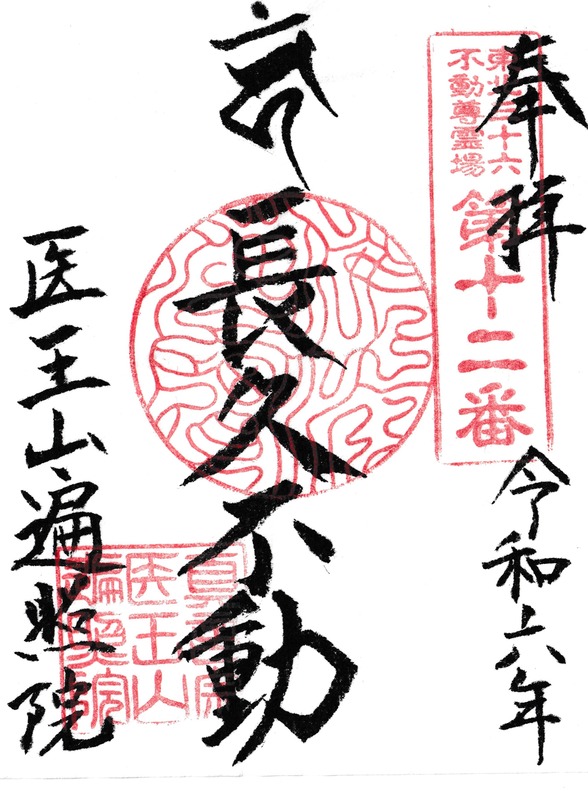 奉拝
東北三十六
不動尊霊場
第十二番
令和六年
長久不動
医王山遍照院
医王山
遍照院